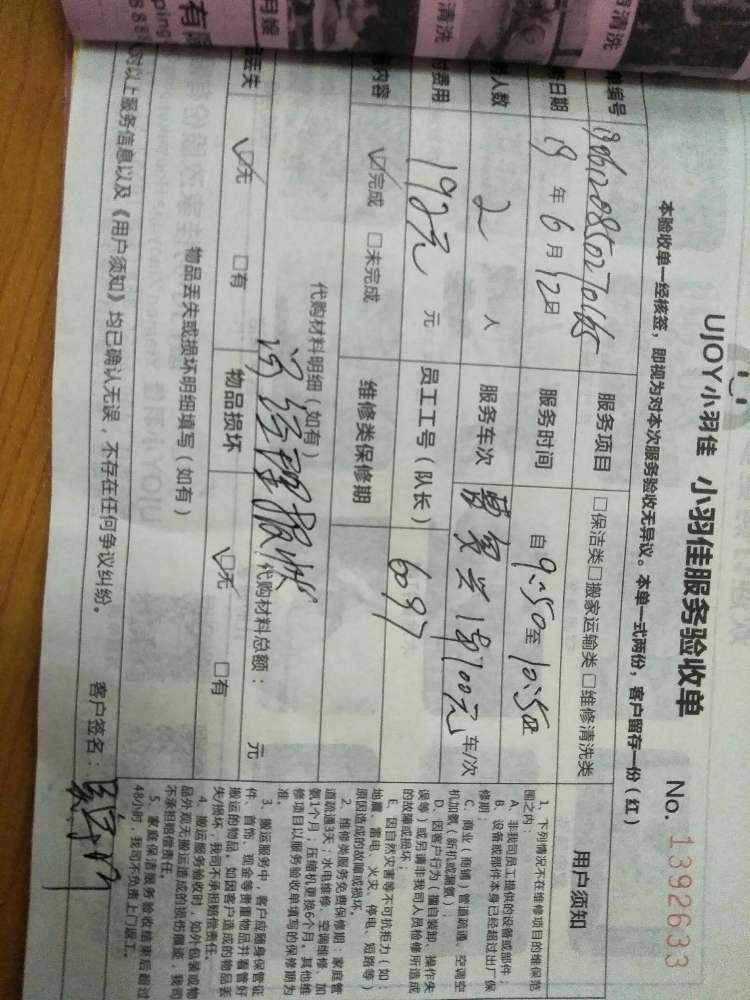 UJOY小羽佳 小羽佳服务验收单 No. 1392633
本验收单一经核签，即视为对本次服务验收无异议。本单一式两份，客户留存一份（红）
单编号
服务项目 □保洁类□搬家运输类□维修清洗类
日期 19 年 6 月 12 日
服务时间 自 9:50 至 10:50
人数 2 人
服务车次 车/次
费用 192元 元
员工工号（队长） 6097
内容 ☑完成 □未完成
维修类保修期
代购材料明细（如有）
代购材料总额： 元
丢失 ☑无 □有
物品损坏 ☑无 □有
物品丢失或损坏明细填写（如有）
对以上服务信息以及《用户须知》均已确认无误，不存在任何争议纠纷。
客户签名：
用户须知
1、下列情况不在维修项目的维保范
围之内：
A、非我司员工提供的设备或部件；
B、设备或部件本身已经超过出厂保
修期；
C、商业（商铺）管道疏通、空调空
机加氨（新机或漏氨）；
D、因客户行为（擅自装卸、操作失
误等）或另请非我司人员检修所造成
的故障或损坏；
E、因自然灾害等不可抗拒力（如：
地震、雷电、火灾、停电、短路等）
原因造成的故障或损坏。
2、维修类服务免费保修期：家庭管
道疏通3天；水电维修、空调维修、加
氨1个月；压缩机更换6个月，其他维
修项目以服务验收单填写的保修期为
准。
3、搬运服务中，客户应随身保管证
件、首饰、现金等贵重物品并看管好
搬运的物品，如因客户造成的物品丢
失/损坏，我司不承担赔偿责任。
4、搬运服务验收时，如外包装或物
品外观无搬运造成的损伤痕迹，我司
不承担赔偿责任。
5、家庭保洁服务验收结束后超过
48小时，我司不负责上门返工。
有限
月嫂
清洗
清洗